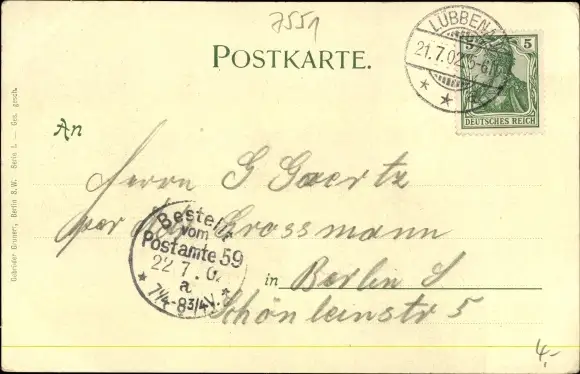 7551
POSTKARTE.
LÜBBEN
21.7.02. 5-6N.
5 5
DEUTSCHES REICH
An
Herrn G Goertz
per Adr Grossmann
in Berlin S
Schönleinstr 5
Bestellt
vom
Postamte 59
22.7.02
a
7¼-8¾V.
Gebrüder Gruner, Berlin S.W. Ges. gesch.
4,-